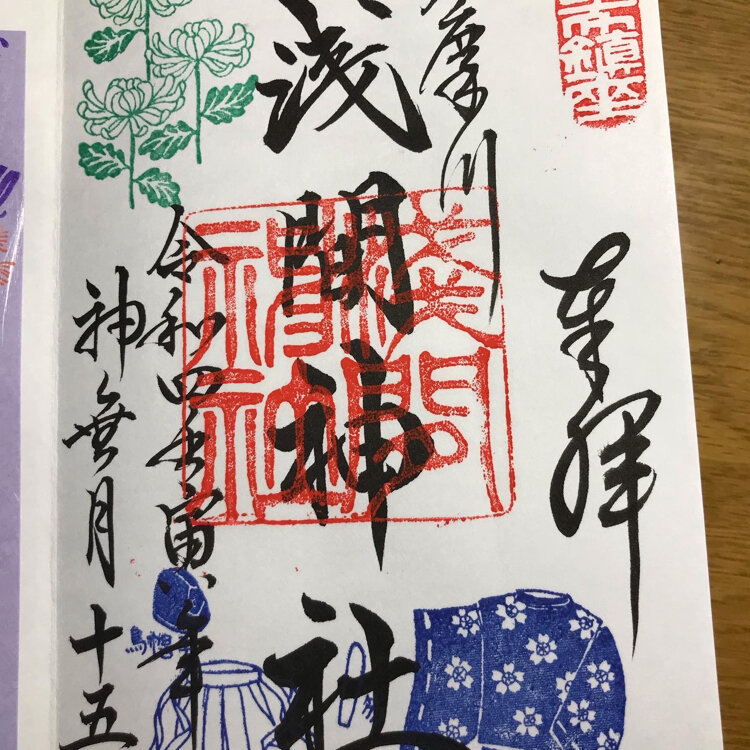 鎮座
奉拝
摩川
浅間神社
浅間神社
令和四壬寅年
神無月十五